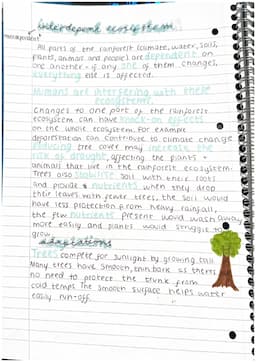 interdependent ecosystem
All parts of the rainforest (climate, water, soils,
plants, animals and people) are dependent on
one another - if any one of them changes,
everything else is affected.
Humans are interfering with these
ecosystems.
Changes to one part of the rainforest
ecosystem can have knock-on effects
on the whole ecosystem. For example
deforestation can contribute to climate change
reducing tree cover may increase the
risk of drought, affecting the plants +
animals that live in the rainforest ecosystem.
Trees also stabilise soil with their roots
and provide nutrients when they drop
their leaves. With fewer trees, the soil would
have less protection from heavy rainfall,
the few nutrients present would wash away
more easily and plants would struggle to
grow.
adaptations
Trees compete for sunlight by growing tall
Many trees have smooth, thin bark as there's
no need to protect the trunk from
cold temps. The smooth surface helps water
easily run-off.